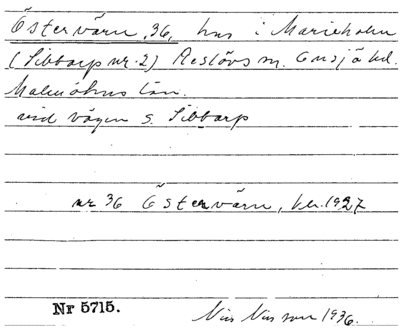 Östervärn, 36, hus i Marieholm
(Sibbarp nr. 2) Reslövs sn. Onsjö hd.
Malmöhus län.
vid vägen s. Sibbarp
nr 36 Östervärn, ber. 1927
Nr 5715.
Nils Nilsson 1936.